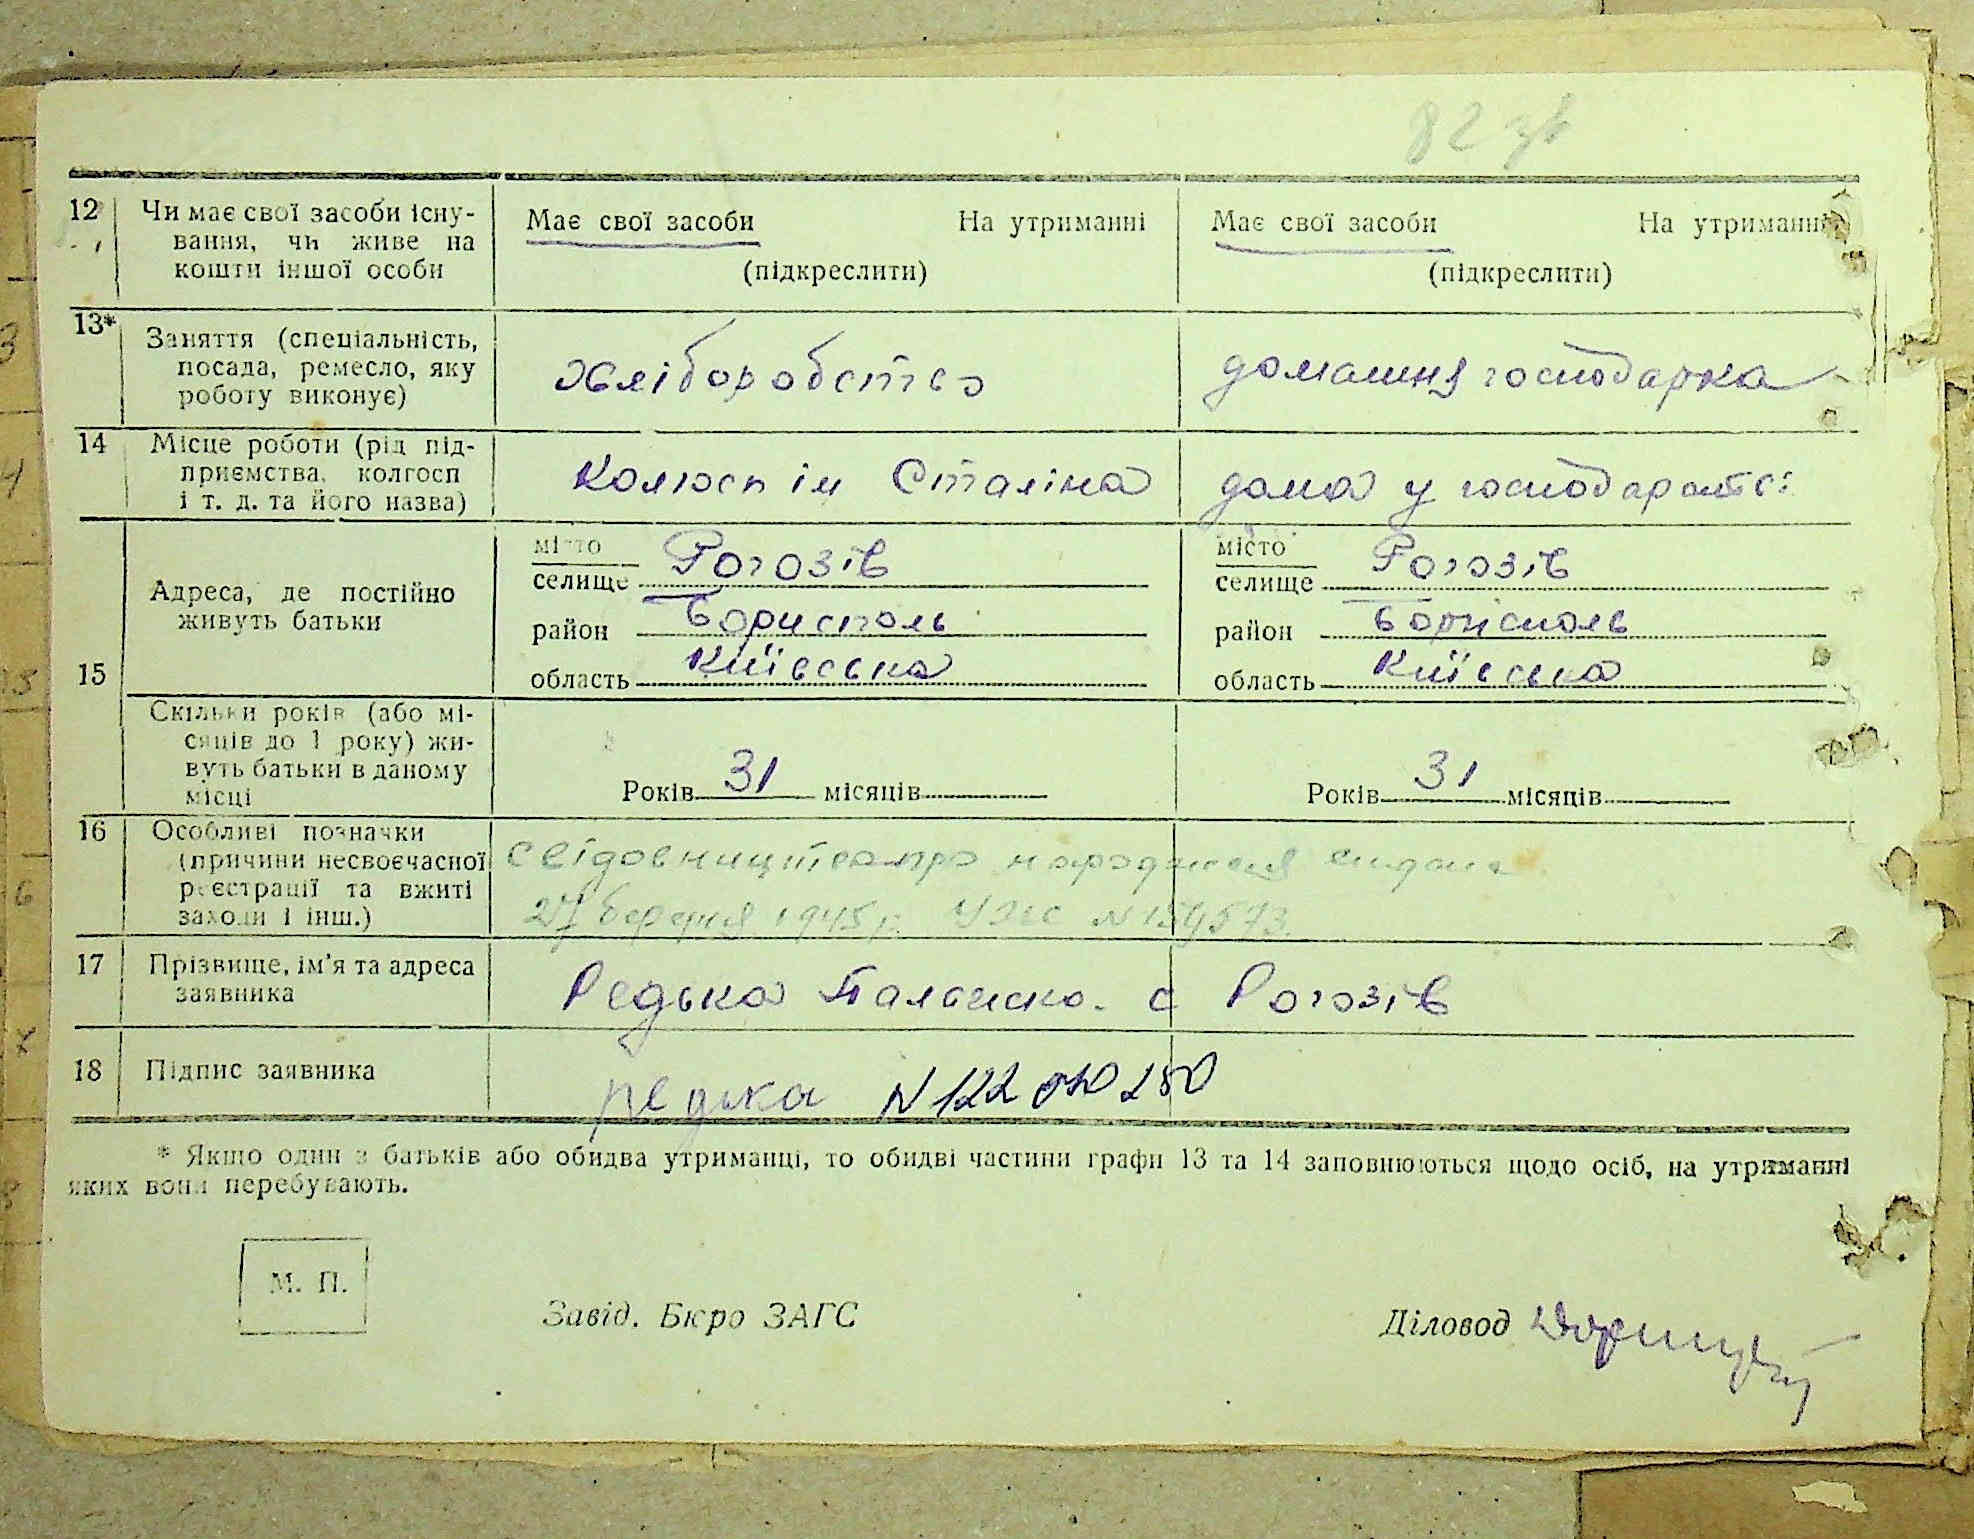 82 зв
12 Чи має свої засоби існу-
вання, чи живе на
кошти іншої особи
Має свої засоби На утриманні
(підкреслити)
Має свої засоби На утриманні
(підкреслити)
13* Заняття (спеціальність,
посада, ремесло, яку
роботу виконує)
хліборобство
домашня господарка
14 Місце роботи (рід під-
приємства, колгосп
і т. д. та його назва)
Колгосп ім Сталіна
дома у господарстві
15
Адреса, де постійно
живуть батьки
місто
селище Рогозів
район Бориспіль
область Київська
місто
селище Рогозів
район Борисполь
область Київська
Скільки років (або мі-
сяців до 1 року) жи-
вуть батьки в даному
місці
Років 31 місяців
Років 31 місяців
16 Особливі позначки
(причини несвоєчасної
реєстрації та вжиті
заходи і інш.)
Свідовництво про народження видана
27 березня 1945 р. № 159573.
17 Прізвище, ім'я та адреса
заявника
Редька с Рогозів
18 Підпис заявника
редька N 122
* Якщо один з батьків або обидва утриманці, то обидві частини графи 13 та 14 заповнюються щодо осіб, на утриманні
яких вони перебувають.
М. П.
Завід. Бюро ЗАГС
Діловод